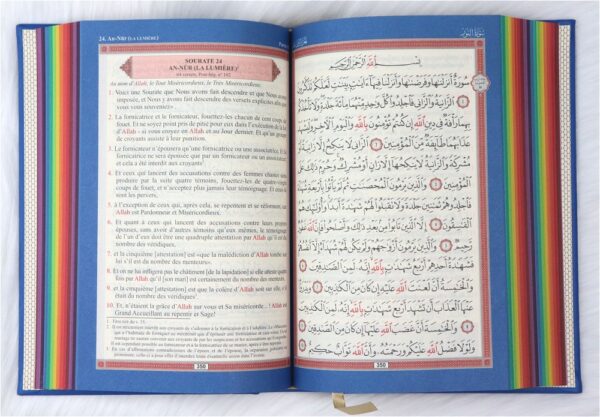 24. AN-NŪR (LA LUMIÈRE)
SOURATE 24
AN-NŪR (LA LUMIÈRE)¹
64 versets, Post-hég. n° 102
Au nom d'Allah, le Tout Miséricordieux, le Très Miséricordieux.
1. Voici une Sourate que Nous avons fait descendre et que Nous avons
imposée, et Nous y avons fait descendre des versets explicites afin que
vous vous souveniez».
2. La fornicatrice et le fornicateur, fouettez-les chacun de cent coups de
fouet. Et ne soyez point pris de pitié pour eux dans l'exécution de la loi
d'Allah - si vous croyez en Allah et au Jour dernier. Et qu'un groupe
de croyants assiste à leur punition.
3. Le fornicateur n'épousera qu'une fornicatrice ou une associatrice. Et la
fornicatrice ne sera épousée que par un fornicateur ou un associateur;
et cela a été interdit aux croyants
4. Et ceux qui lancent des accusations contre des femmes chastes sans
produire par la suite quatre témoins, fouettez-les de quatre-vingts
coups de fouet, et n'acceptez plus jamais leur témoignage. Et ceux-là
sont les pervers,
5. à l'exception de ceux qui, après cela, se repentent et se réforment, car
Allah est Pardonneur et Miséricordieux.
6. Et quant à ceux qui lancent des accusations contre leurs propres
épouses, sans avoir d'autres témoins qu'eux mêmes, le témoignage
de l'un d'eux doit être une quadruple attestation par Allah qu'il est du
nombre des véridiques,
7. et la cinquième [attestation] est «que la malédiction d'Allah tombe sur
lui s'il est du nombre des menteurs».
8. Et on ne lui infligera pas le châtiment [de la lapidation] si elle atteste quatre
fois par Allah qu'il [son mari] est certainement du nombre des menteurs,
9. et la cinquième [attestation] est que la colère d'Allah soit sur elle, s'il
était du nombre des véridiques
10. Et, n'étaient la grâce d'Allah sur vous et Sa miséricorde...! Allah est
Grand Accueillant au repentir et Sage!
350
سورة النور
بسم الله الرحمن الرحيم
سورة أنزلناها وفرضناها وأنزلنا فيها آيات بينات لعلكم تذكرون
١ الزانية والزاني فاجلدوا كل واحد منهما مائة جلدة ولا تأخذكم
بهما رأفة في دين الله إن كنتم تؤمنون بالله واليوم الآخر وليشهد
عذابهما طائفة من المؤمنين ٢ الزاني لا ينكح إلا زانية أو
مشركة والزانية لا ينكحها إلا زان أو مشرك وحرم ذلك على
المؤمنين ٣ والذين يرمون المحصنات ثم لم يأتوا بأربعة
شهداء فاجلدوهم ثمانين جلدة ولا تقبلوا لهم شهادة أبدا وأولئك هم
الفاسقون ٤ إلا الذين تابوا من بعد ذلك وأصلحوا فإن الله غفور
رحيم ٥ والذين يرمون أزواجهم ولم يكن لهم شهداء إلا أنفسهم
فشهادة أحدهم أربع شهادات بالله إنه لمن الصادقين ٦
والخامسة أن لعنت الله عليه إن كان من الكاذبين ٧ ويدرؤا
عنها العذاب أن تشهد أربع شهادات بالله إنه لمن الكاذبين ٨
والخامسة أن غضب الله عليها إن كان من الصادقين ٩
ولولا فضل الله عليكم ورحمته وأن الله تواب حكيم ١٠
350